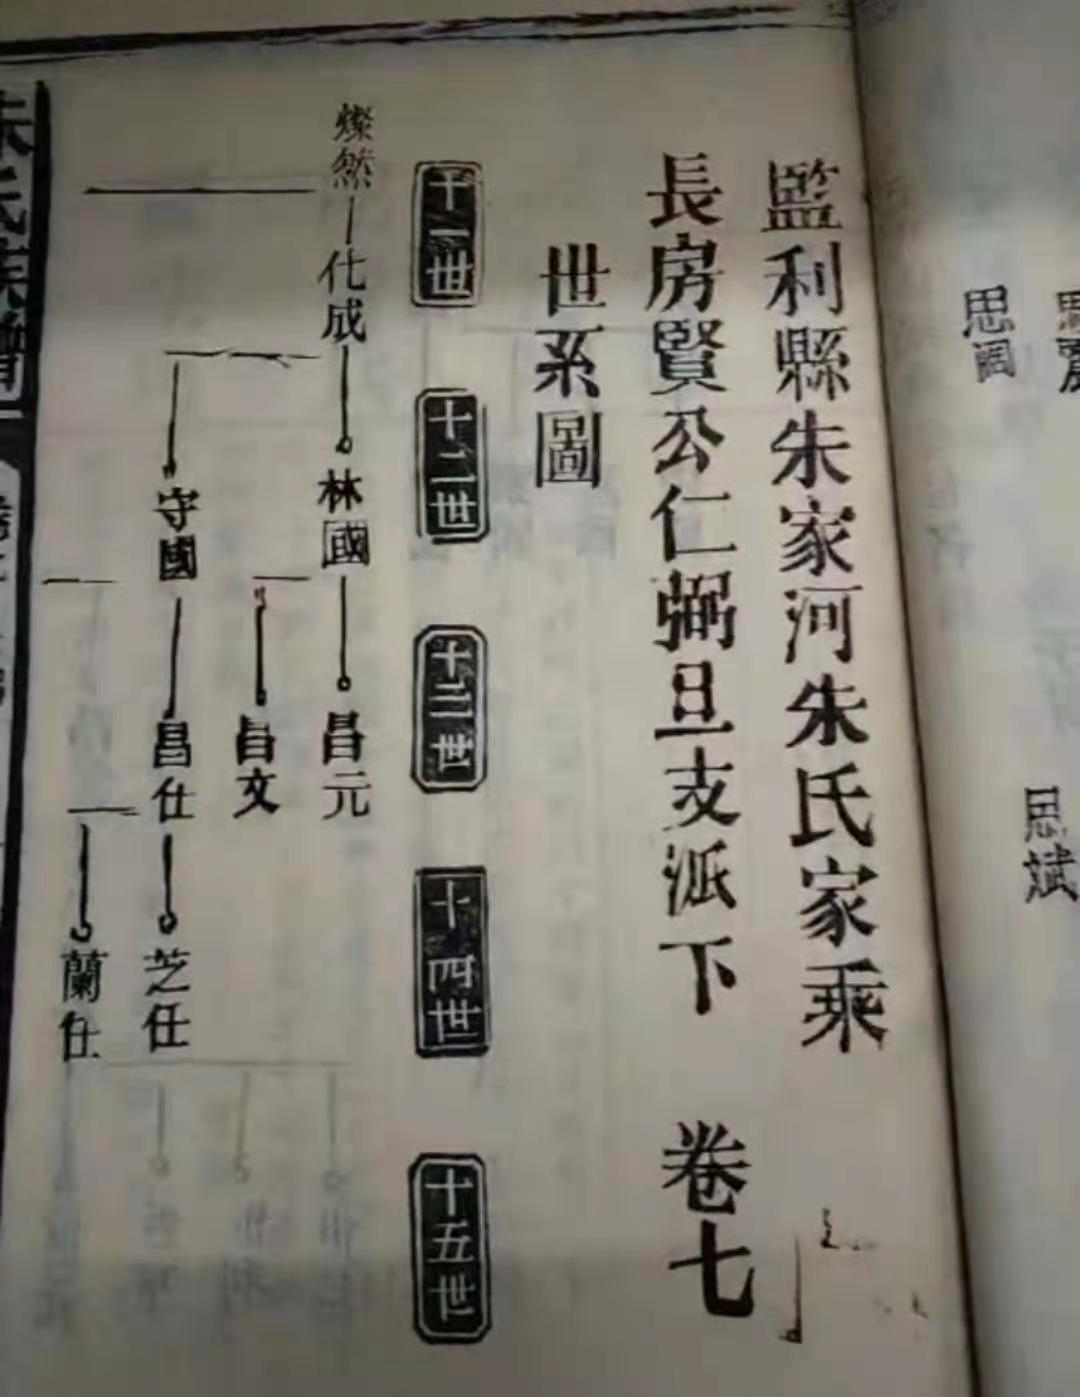 思斌
思調
監利縣朱家河朱氏家乘
長房賢公仁弼旦支派下 卷七
世系圖
十一世
十二世
十三世
十四世
十五世
燦然
化成
林國
昌元
昌文
守國
昌仕
芝仕
蘭仕
朱氏族譜